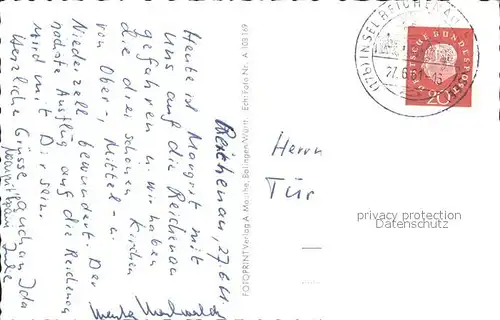 Reichenau, 27.6.61.
Heute ist Margret mit
uns auf die Reichenau
gefahren u. wir haben
die drei schönen Kirchen
von Ober-, Mittel- u.
Niederzell bewundert. Der
nächste Ausflug auf die Reichenau
wird mit Dir sein.
Herzliche Grüsse auch an Ida
FOTOPRINT Verlag A. Mosche, Balingen/Württ. Echt Foto Nr. A 103 169
(17b) INSEL REICHENAU
27.6.61-16
DEUTSCHE BUNDESPOST
20
Herrn
Tür
privacy protection
Datenschutz